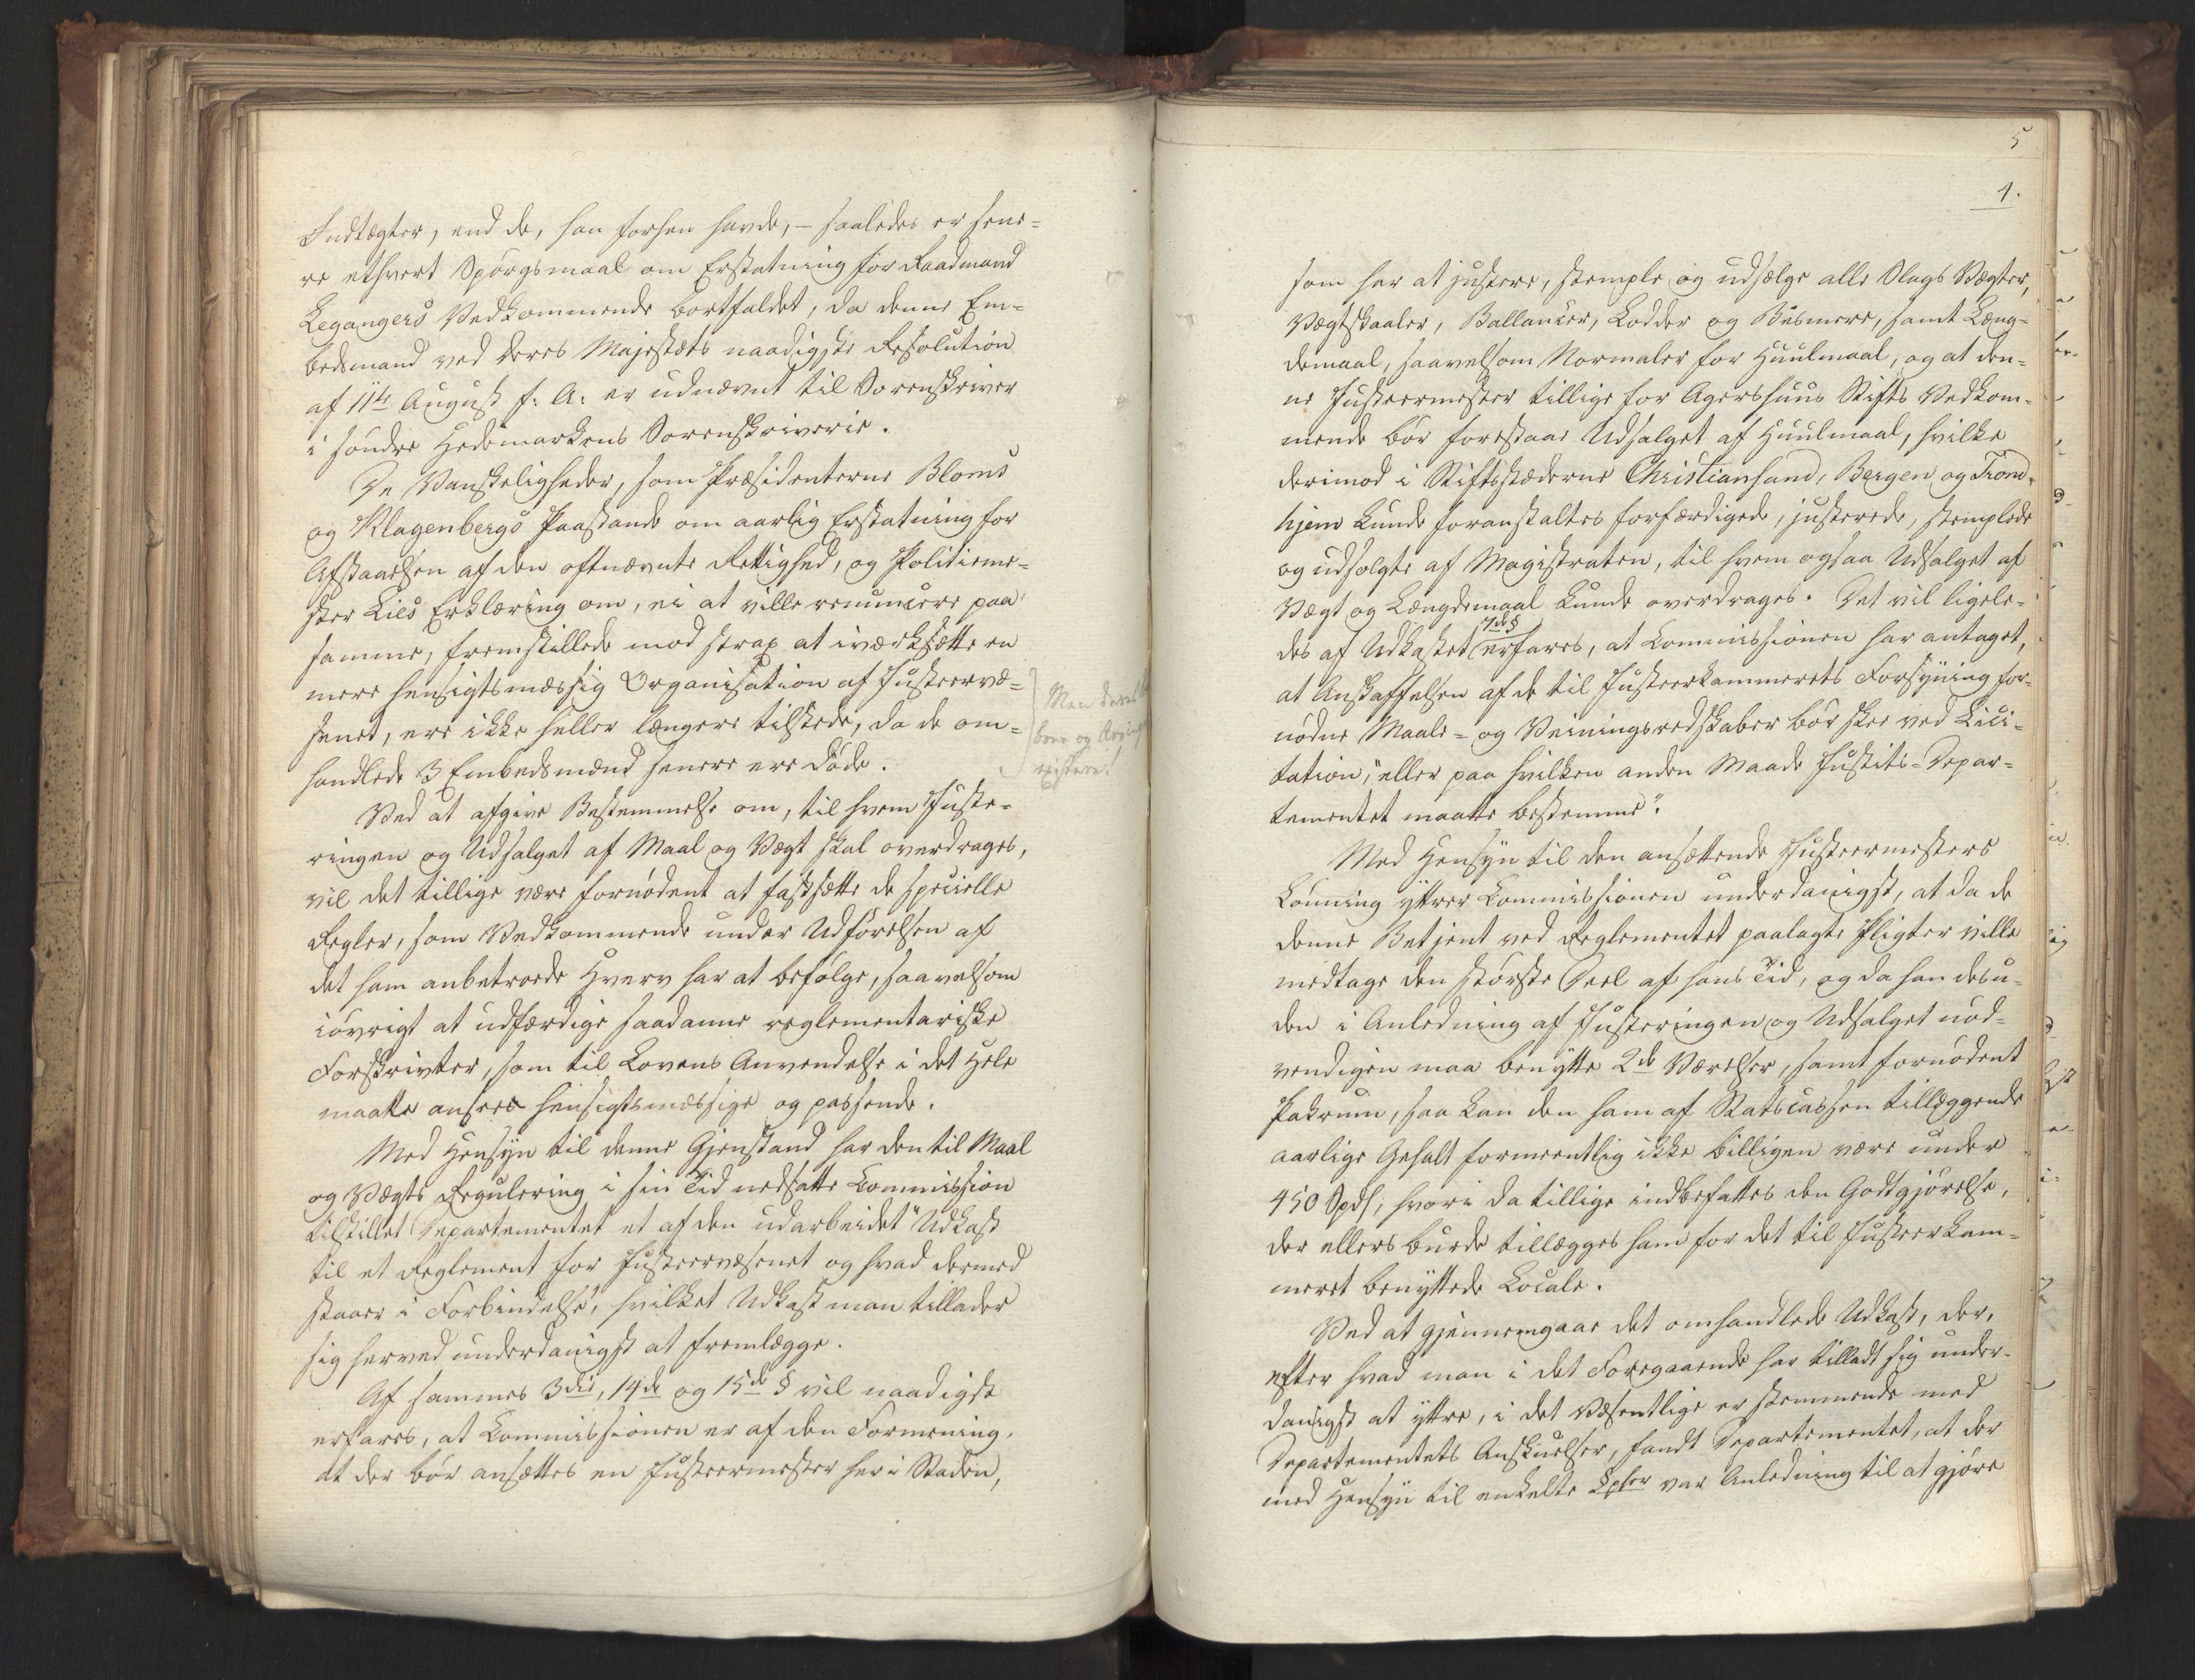 Indtægter, end de, han forhen havde, - saaledes er sene-
re ethvert Spørgsmaal om Erstatning for Raadmand
Legangers Vedkommende bortfaldet, da denne Em-
bedsmand ved Deres Majestæts naadigste Resolution
af 11te August f: A: er udnævnt til Sorenskriver
i søndre Hedemarkens Sorenskriverie.
De Vanskeligheder, som Præsidenterne Bloms
og Klagenbergs Paastande om aarlig Erstatning for
Afstaaelsen af den oftnævnte Rettighed, og Politieme-
ster Lies Erklæring om, ei at ville renuncere paa
samme, fremstillede mod strax at iværksætte en
mere hensigtsmæssig Organisation af Justeervæ-
senet, ere ikke heller længere tilstede, da de om-
handlede 3 Embedsmænd senere ere døde.
Men deres
børn og
existere!
Ved at afgive Bestemmelse om, til hvem Juste-
ringen og Udsalget af Maal og Vægt skal overdrages,
vil det tillige være fornødent at fastsætte de specielle
Regler, som Vedkommende under Udførelsen af
det ham anbetroede Hverv har at befølge, saavelsom
iøvrigt at udfærdige saadanne reglementariske
Forskrivter, som til Lovens Anvendelse i det Hele
maatte ansees hensigtsmæssige og passende.
Med Hensyn til denne Gjenstand har den til Maal
og Vægts Regulering i sin Tid nedsatte Commission
tilstillet Departementet et af den udarbeidet "Udkast
til et Reglement for Justeervæsenet og hvad dermed
staaer i Forbindelse", hvilket Udkast man tillader
sig herved underdanigst at fremlægge.
Af sammes 3die, 14de og 15de § vil naadigst
erfares, at Commissionen er af den Formening,
at der bør ansættes en Justeermester her i Staden,
5
4.
som har at justere, stemple og udsælge alle Slags Vægter,
Vægtskaaler, Ballancer, Lodder og Bismere, samt Læng-
demaal, saavelsom Normaler for Huulmaal, og at den-
ne Justeermester tillige for Agershuus Stifts Vedkom-
mende bør forestaae Udsalget af Huulmaal, hvilke
derimod i Stiftsstæderne Christiansand, Bergen og Trond-
hjem kunde foranstaltes forfærdigede, justerede, stemplede
og udsolgte af Magistraten, til hvem ogsaa Udsalget af
Vægt og Længdemaal kunde overdrages. Det vil ligele-
7de §
des af Udkastet erfares, at Commissionen har antaget,
at Anskaffelsen af de til Justeerkammerets Forsyning for-
nødne Maale- og Veiningsredskaber bør skee ved Lici-
tation, "eller paa hvilken anden Maade Justits-Depar-
tementet maatte bestemme".
Med Hensyn til den ansættende Justeermesters
Lønning yttrer Commissionen underdanigst, at da de
denne Betjent ved Reglementet paalagte Pligter ville
medtage den største Deel af hans Tid, og da han desu-
den i Anledning af Justeringen og Udsalget nød-
vendigen maa benytte 2de Værelser, samt fornødent
Pakrum, saa kan den ham af Statscassen tillæggende
aarlige Gehalt formeentlig ikke billigen være under
450 Spd, hvori da tillige indbefattes den Godtgjørelse,
der ellers burde tillægges ham for det til Justeerkam-
meret benyttede Locale.
Ved at gjennemgaae det omhandlede Udkast, der,
efter hvad man i det Foregaaende har tilladt sig under-
danigst at yttre, i det Væsentlige er stemmende med
Departementets Anskuelser, fandt Departementet, at der
med Hensyn til enkelte §pher var Anledning til at gjøre